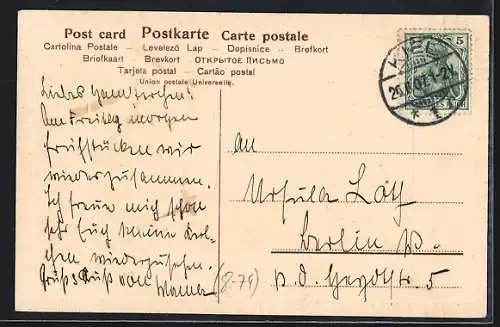 Post card Postkarte Carte postale
Cartolina Postale – Levelezö Lap – Dopisnice – Brefkort
Briefkaart – Brevkort – ОТКРЫТОЕ ПИСЬМО
Tarjeta postal – Cartão postal
Union postale Universelle.
5
KIEL
1
Liebes
Am Freitag morgen
frühstücken wir
wieder zusammen.
Ich freue mich schon
sehr Euch meine
wiederzusehen.
Gruß Kuß von Mama
(8-79)
An
Ursula Loth
Berlin W.
v. d. Heydtstr. 5